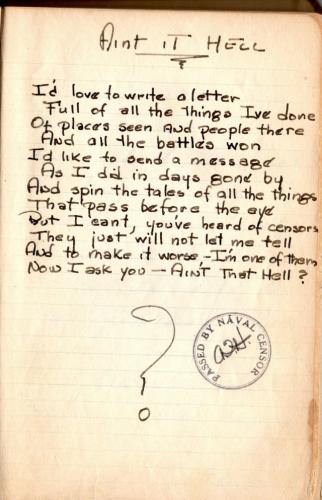 Aint iT HELL
I'd love to write a letter
Full of all the things Ive done
Of places seen And people there
And all the battles won
I'd like to send a message
As I did in days gone by
And spin the tales of all the things
That pass before the eye
But I cant, you've heard of censors
They just will not let me tell
And to make it worse,-I'm one of them
Now I ask you — AINT That Hell ?
?
PASSED BY NAVAL CENSOR